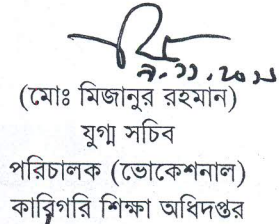 (মোঃ মিজানুর রহমান)
যুগ্ম সচিব
পরিচালক (ভোকেশনাল)
কারিগরি শিক্ষা অধিদপ্তর